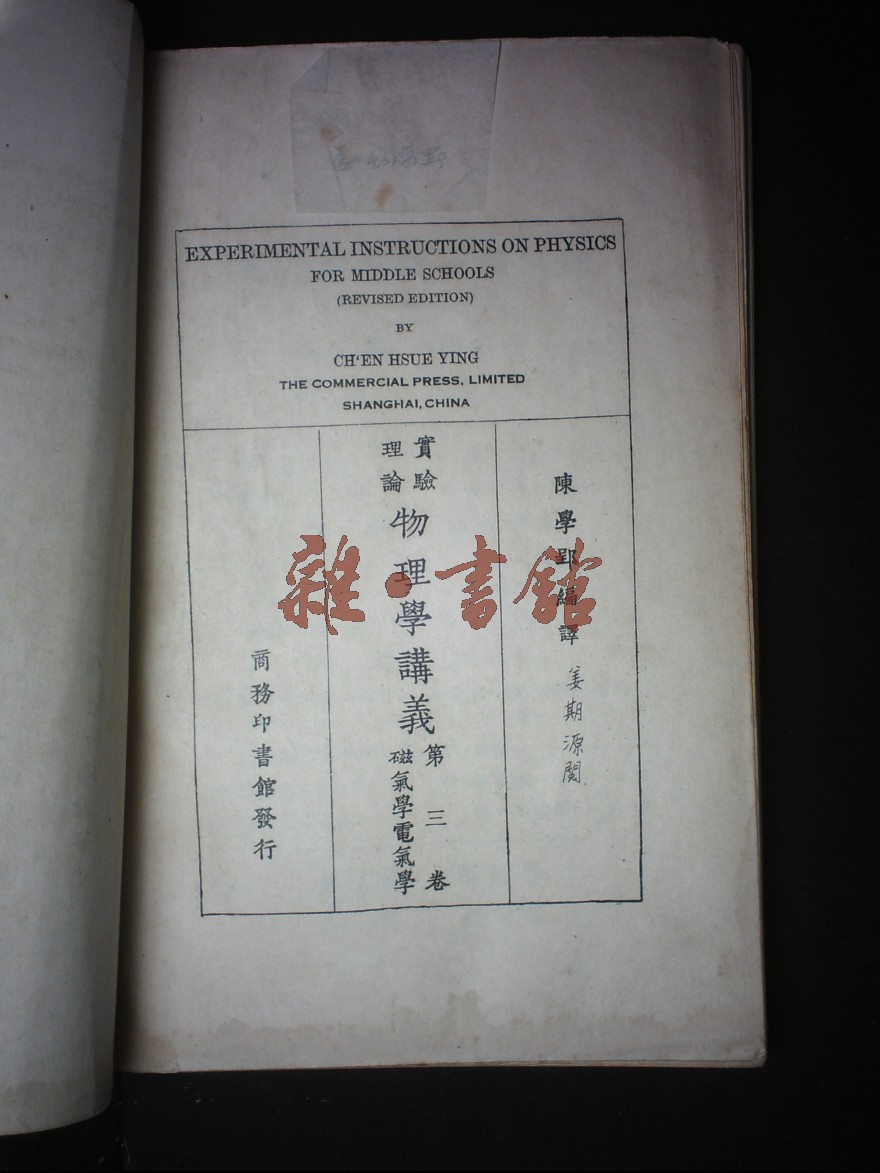 EXPERIMENTAL INSTRUCTIONS ON PHYSICS
FOR MIDDLE SCHOOLS
(REVISED EDITION)
BY
CH‘EN HSUE YING
THE COMMERCIAL PRESS, LIMITED
SHANGHAI, CHINA
陳學郢編譯
姜期源閱
實驗
理論
物理學講義
第三卷
磁氣學電氣學
商務印書館發行
雜·書館